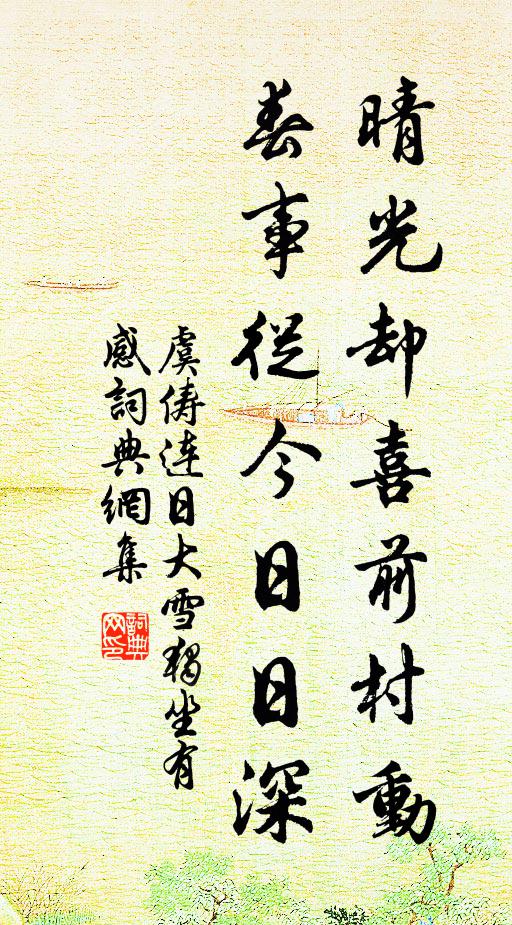 晴光却喜前村動
春事從今日日深
虞儔連日大雪獨坐有
感詞典網集
詞典网印